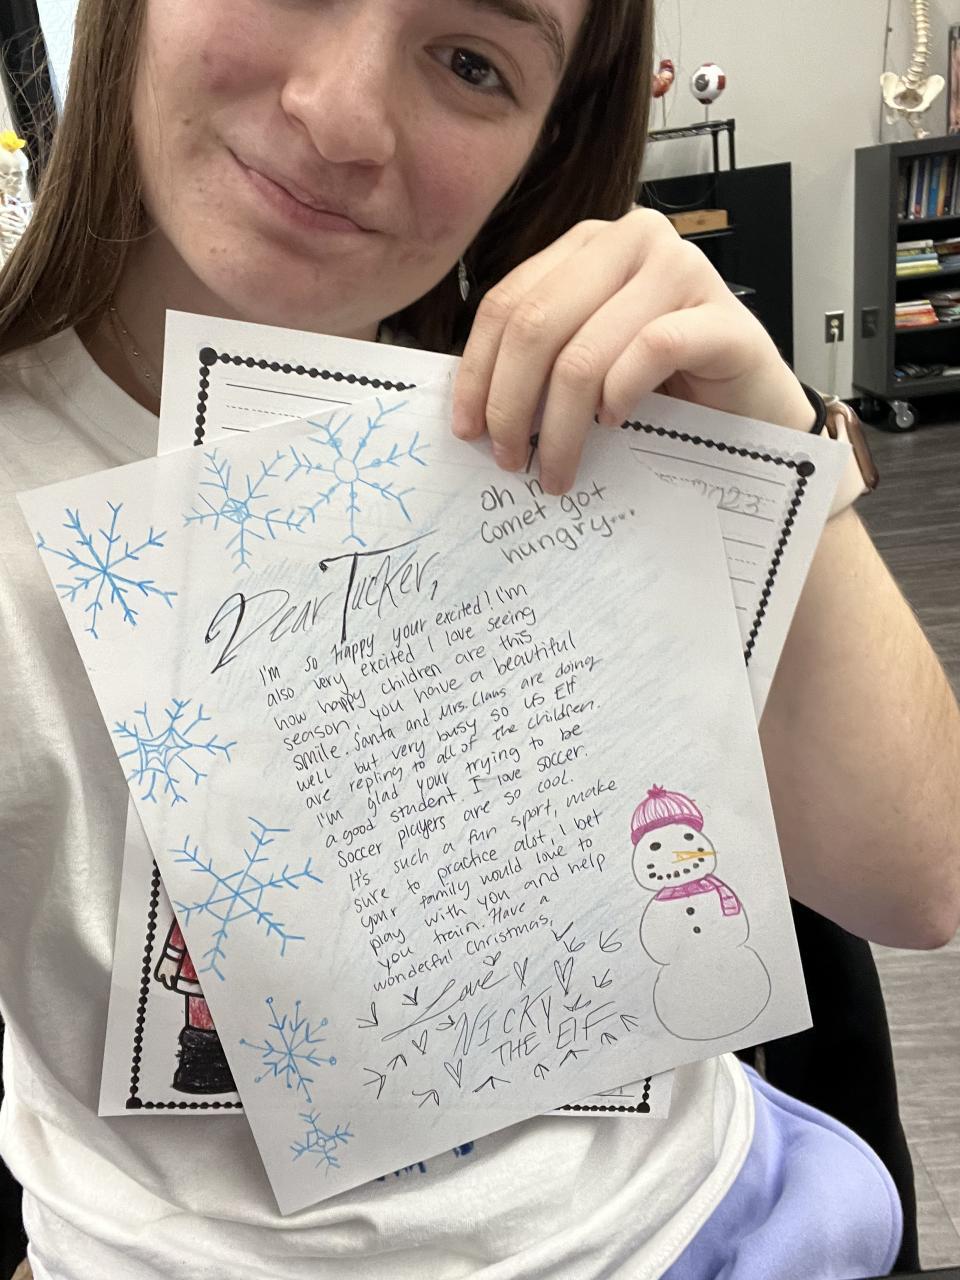 oh n
comet got
hungry...
Dear Tucker,
I'm so happy your excited! I'm
also very excited I love seeing
how happy children are this
season, you have a beautiful
smile. Santa and Mrs. Claus are doing
well but very busy so us Elf
are repling to all of the children.
I'm glad your trying to be
a good student. I love soccer.
Soccer players are so cool.
It's such a fun sport, make
sure to practice alot, I bet
your family would love to
play with you and help
you train. Have a
wonderful Christmas,
Love
NICKY
THE ELF